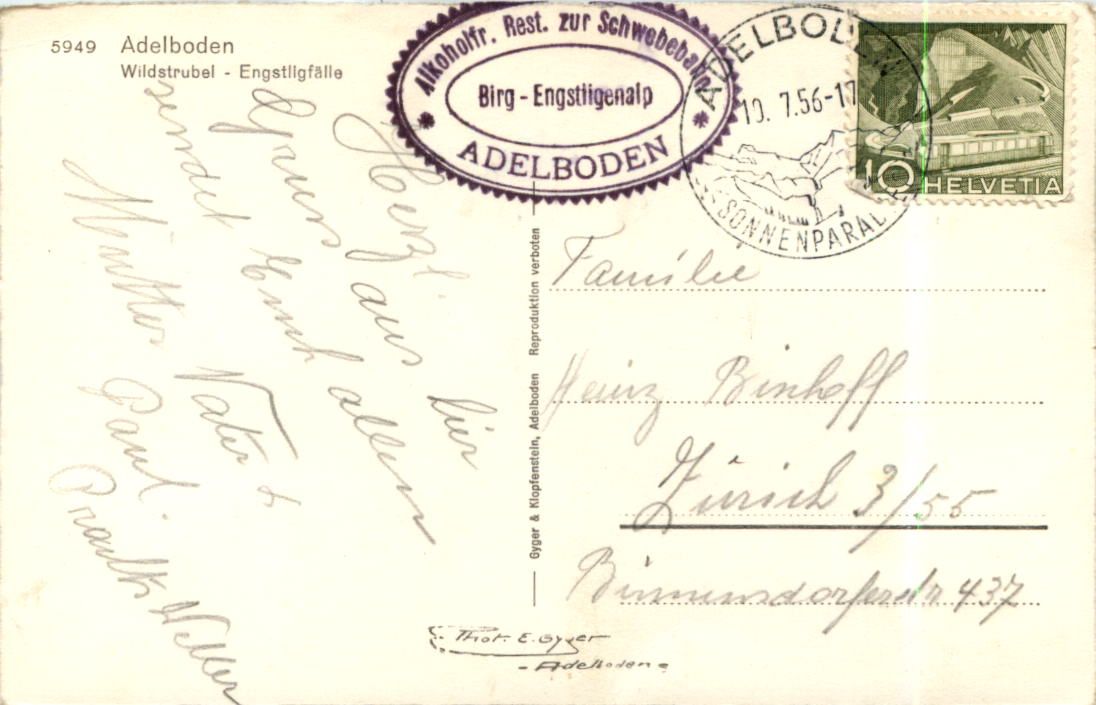 5949 Adelboden
Wildstrubel - Engstligfälle
Alkoholfr. Rest. zur Schwebebahn
Birg - Engstligenalp
* ADELBODEN *
ADELBODEN
10. 7.56-17
SONNENPARAD
10 HELVETIA
Herzl.
Gruss aus hier
sendet Euch allen
Mutter Vater &
Paul.
Familie
Heinz Binhoff
Zürich 3/55
437
Gyger & Klopfenstein, Adelboden Reproduktion verboten
Phot. E. Gyger
- Adelboden -